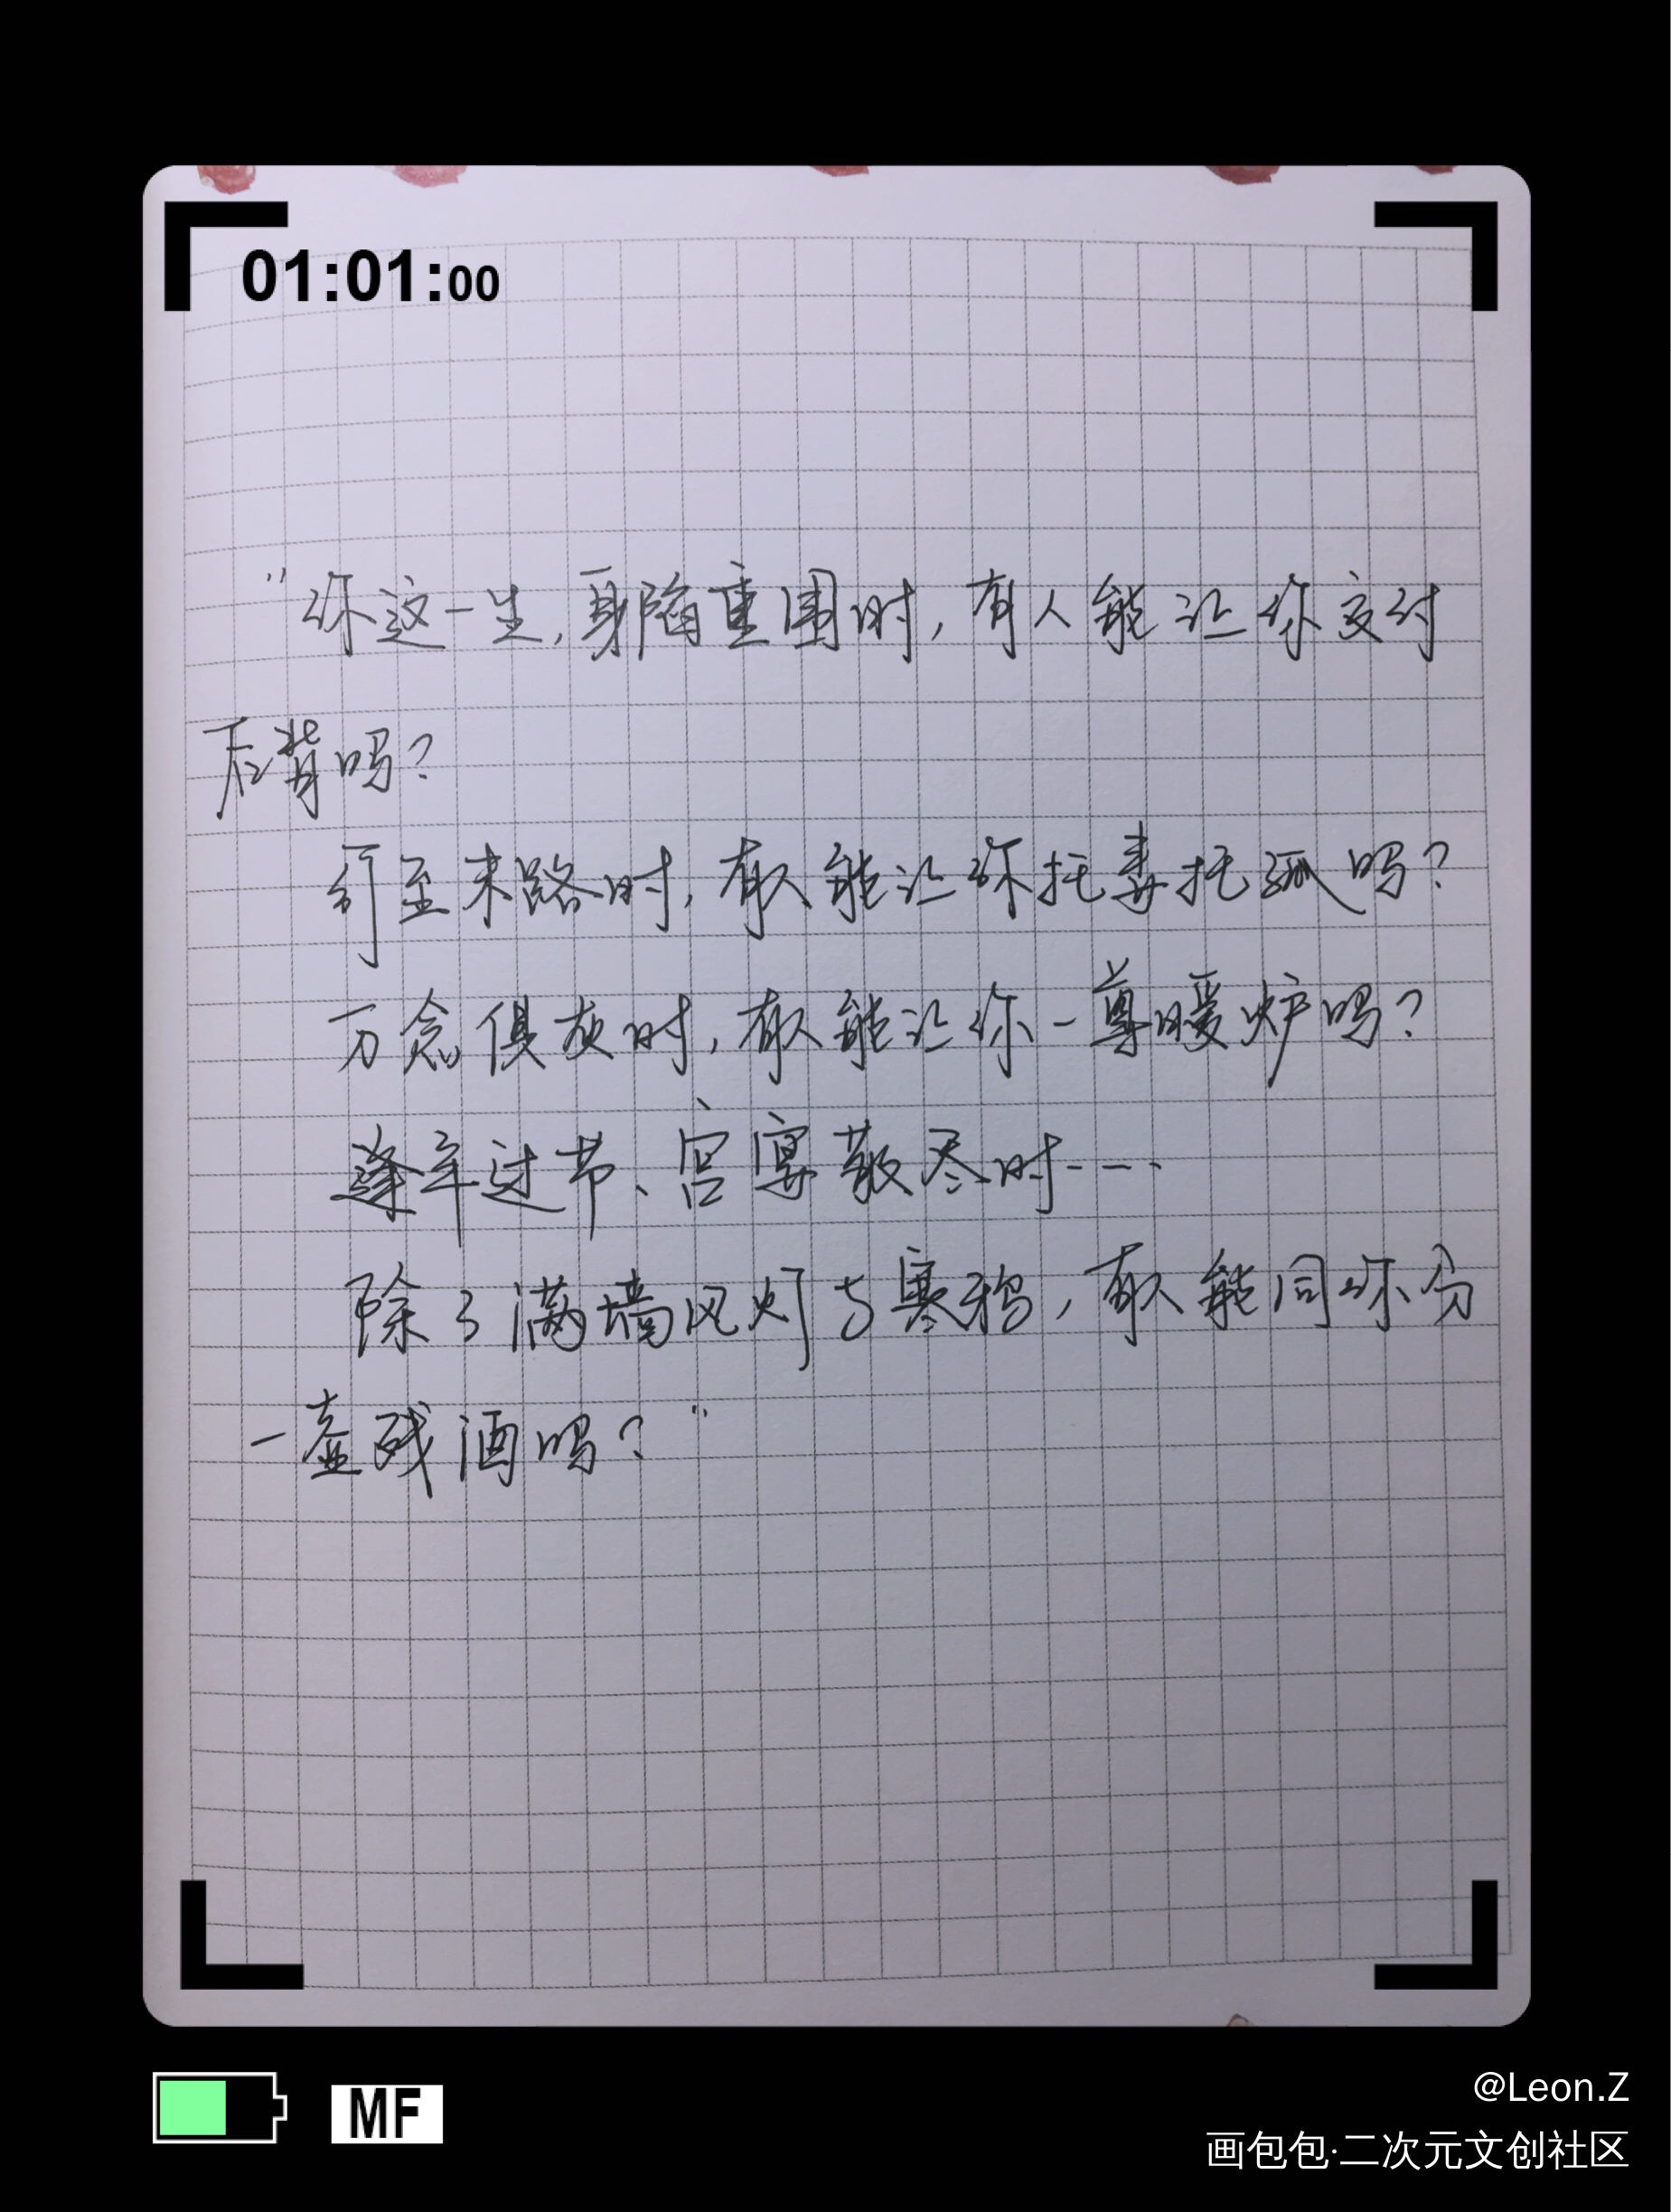 01:01:00
“你这一生,身陷重围时,有人能让你交付
后背吗?
行至末路时,有人能让你托妻托孤吗?
万念俱灰时,有人能让你一尊暖炉吗?
逢年过节、宫宴散尽时----
除了满墙风灯与寒鸦,有人能同你分
一壶残酒吗?”
MF
@Leon.Z
画包包·二次元文创社区